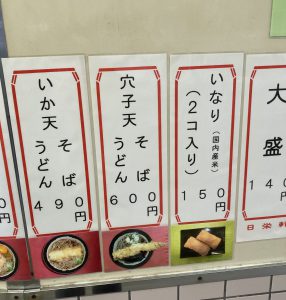 いか天
そば
うどん
490円
穴子天
そば
うどん
600円
いなり(国内産米)
(2コ入り)
150円
大盛
140
日栄軒
円